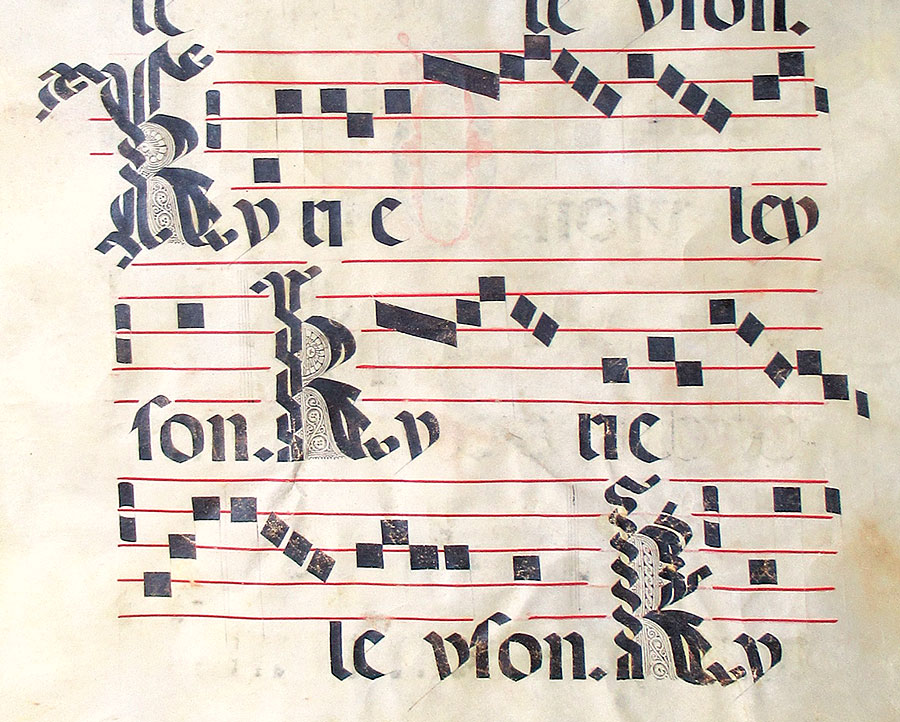 le le yſon.
Ky rie ley
ſon. Ky rie
le yſon. Ky